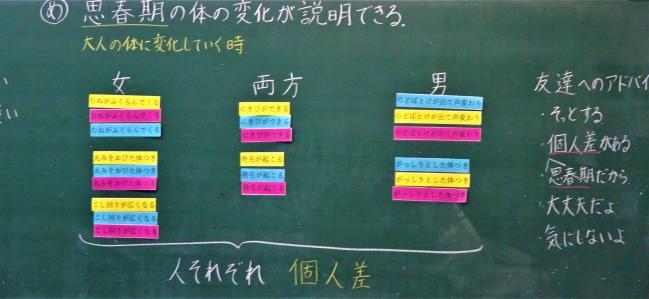 め 思春期の体の変化が説明できる。
大人の体に変化していく時
女
むねがふくらんでくる
むねがふくらんでくる
むねがふくらんでくる
丸みをおびた体つき
丸みをおびた体つき
丸みをおびた体つき
こし回りが広くなる
こし回りが広くなる
こし回りが広くなる
両方
にきびができる
にきびができる
にきびができる
発毛が起こる
発毛が起こる
発毛が起こる
男
のどぼとけが出て声変わり
のどぼとけが出て声変わり
のどぼとけが出て声変わり
がっしりとした体つき
がっしりとした体つき
がっしりとした体つき
人それぞれ 個人差
友達へのアドバイ
・そっとする
・個人差がある
・思春期だから
・大丈夫だよ
・気にしないよ